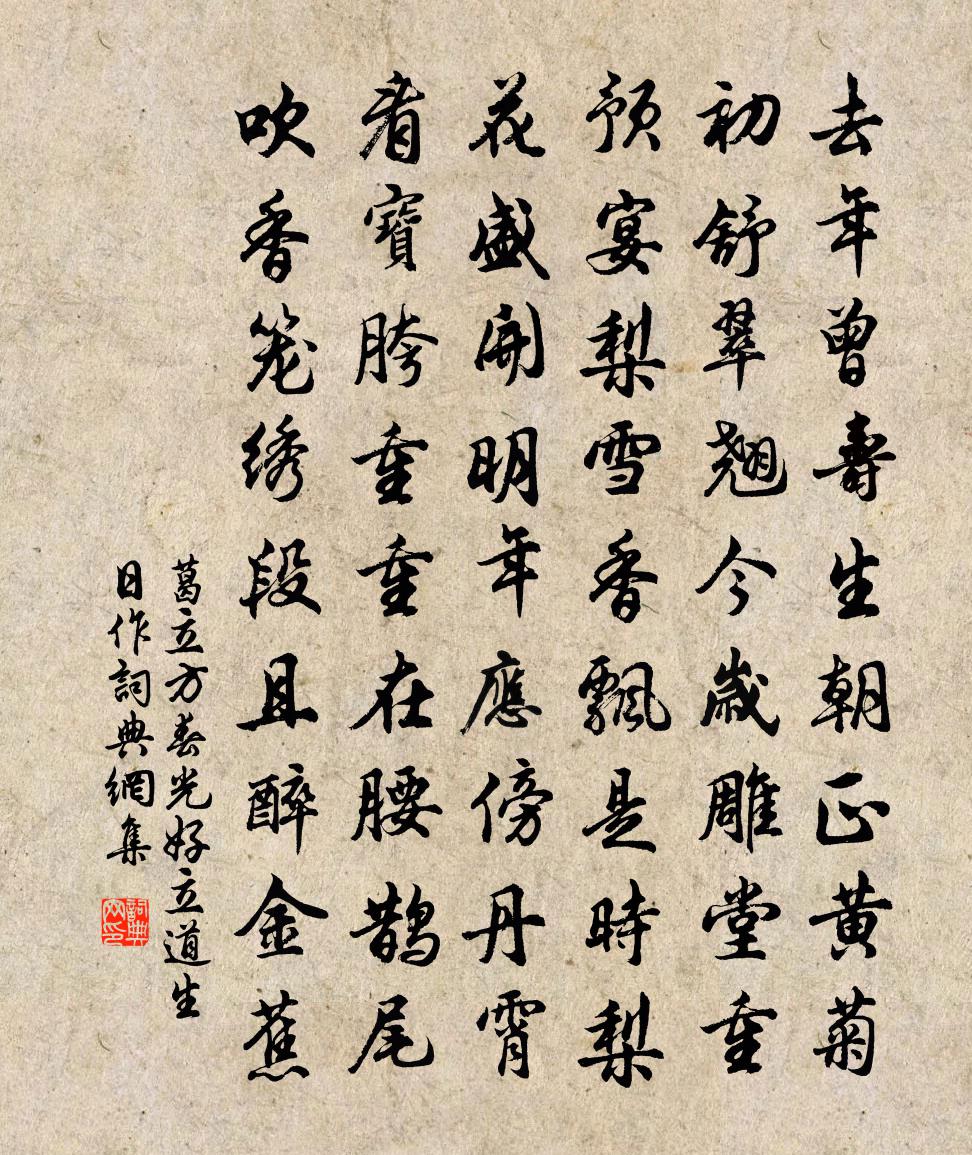 去年曾壽生朝正黃菊
初舒翠翹今歲雕堂重
預宴梨雪香飄是時梨
花盛開明年應傍丹霄
看寶胯重重在腰鵲尾
吹香笼绣段且醉金蕉
葛立方春光好立道生
日作詞典網集
詞典
网印